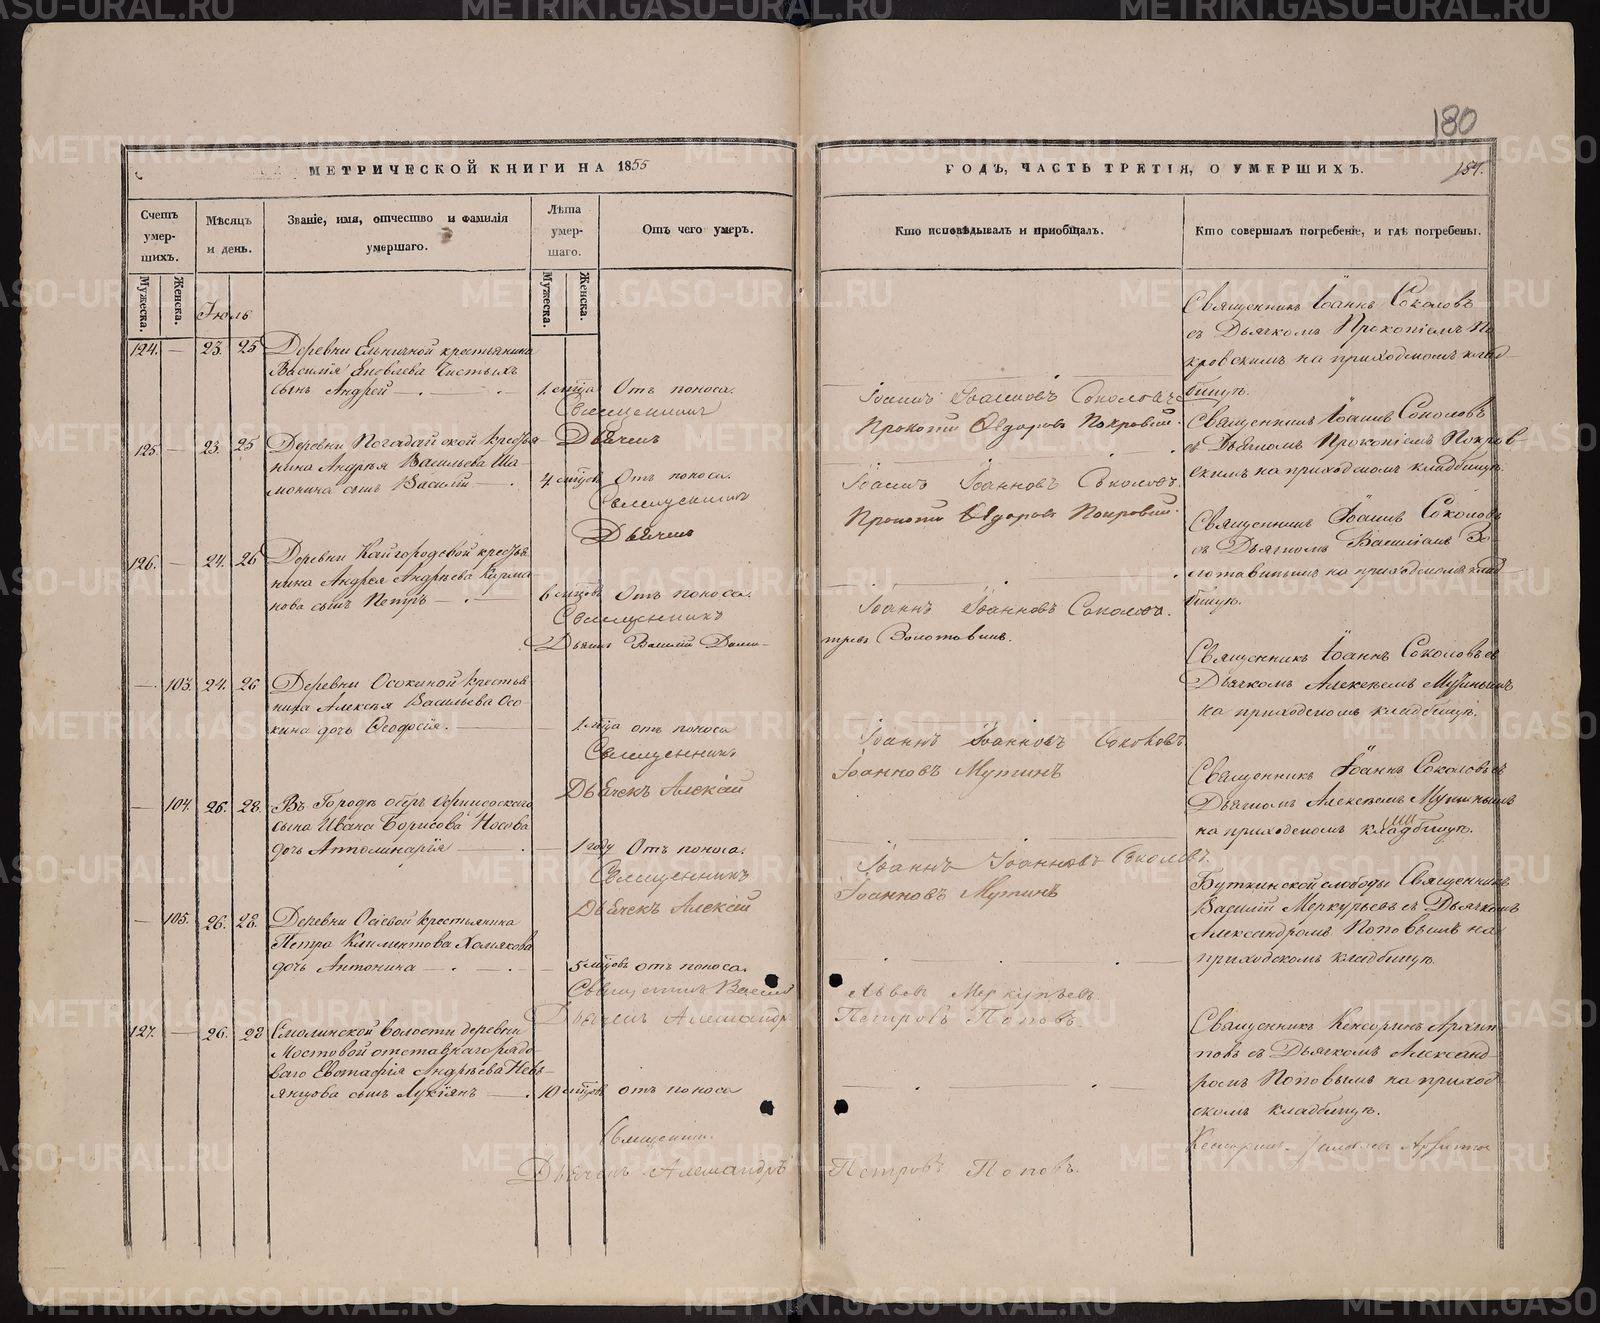 180
МЕТРИЧЕСКОЙ КНИГИ НА 1855
ГОДЪ, ЧАСТЬ ТРЕТІЯ, О УМЕРШИХЪ.
Счетъ умер-
шихъ.
Мѣсяцъ
и день.
Званіе, имя, отчество и фамилія
умершаго.
Лѣта
умер-
шаго.
Отъ чего умеръ.
Кто исповѣдывалъ и пріобщалъ.
Кто совершалъ погребеніе, и гдѣ погребены.
Мужеска.
Женска.
Мужеска.
Женска.
Іюль
124. — 23. 25
Василія Яковлева Чистыхъ
сынъ Андрей —
Отъ поноса.
Священникъ
Іоаннъ Іоанновъ Соколовъ
Дьячекъ
Прокопій Ѳедоровъ Покровскій.
Священникъ Іоаннъ Соколовъ
съ Дьячкомъ Прокопіемъ По-
кровскимъ на приходскомъ клад-
бищѣ.
125. — 23. 25
нина Андрея Васильева Ша-
монина сынъ Василій —
Отъ поноса.
Священникъ
Іоаннъ Іоанновъ Соколовъ.
Дьячекъ
Прокопій Ѳедоровъ Покровскій.
Священникъ Іоаннъ Соколовъ
съ Дьячкомъ Прокопіемъ Покров-
скимъ на приходскомъ кладбищѣ.
126. — 24. 26
Деревни Кайгородовой крестья-
нина Андрея Андрѣева Курма-
нова сынъ Петръ —
Отъ поноса.
Священникъ
Іоаннъ Іоанновъ Соколовъ.
Дьячекъ Василій Дими-
тріевъ Золотавинъ.
Священникъ Іоаннъ Соколовъ
съ Дьячкомъ Василіемъ Зо-
лотавинымъ на приходскомъ клад-
бищѣ.
— 103. 24. 26
Деревни Осокиной крестья-
нина Алексѣя Васильева Осо-
кина дочь Ѳеодосія. —
отъ поноса
Священникъ
Іоаннъ Іоанновъ Соколовъ
Дьячекъ Алексій
Іоанновъ Мутинъ
Священникъ Іоаннъ Соколовъ съ
Дьячкомъ Алексѣемъ Мутинымъ
на приходскомъ кладбищѣ.
— 104. 26. 28.
сына Ивана Борисова Носова
дочь Апполинарія —
1 году Отъ поноса.
Священникъ
Іоаннъ Іоанновъ Соколовъ.
Дьячекъ Алексій
Іоанновъ Мутинъ
Священникъ Іоаннъ Соколовъ съ
Дьячкомъ Алексѣемъ Мутинымъ
на приходскомъ кладбищѣ.
— 105. 26. 28.
крестьянина
Петра Климентова Холякова
дочь Антонина —
отъ поноса.
Священникъ Василій
Львовъ Меркурьевъ.
Дьячекъ Александръ
Петровъ Поповъ.
Буткинской слободы Священникъ
Василій Меркурьевъ съ Дьячкомъ
Александромъ Поповымъ на
приходскомъ кладбищѣ.
127. — 26. 28
Смолинской волости деревни
Мостовой отставнаго рядо-
ваго Евстафія Андрѣева Невь-
янцова сынъ Лукіянъ —
отъ поноса
Священникъ
Дьячекъ Александръ
Петровъ Поповъ.
съ Дьячкомъ Александ-
ромъ Поповымъ на приход-
скомъ кладбищѣ.
METRIKI.GASO-URAL.RU